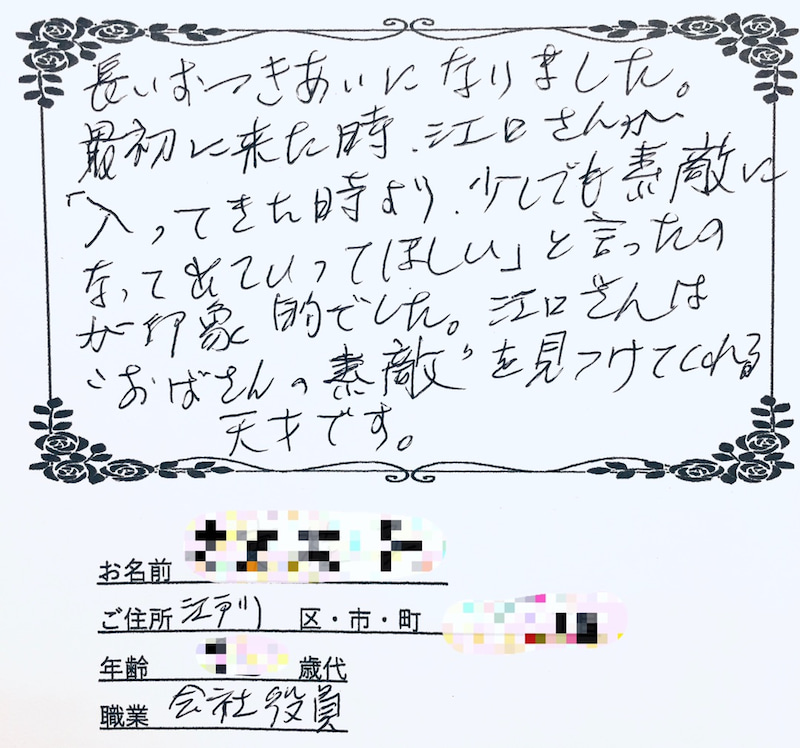 長いおつきあいになりました。
最初に来た時、江口さんが
「入ってきた時より、少しでも素敵に
なって出ていってほしい」と言ったの
が印象的でした。江口さんは
"おばさんの素敵"を見つけてくれる
天才です。
お名前
ご住所 江戸川 区・市・町
年齢 歳代
職業 会社役員